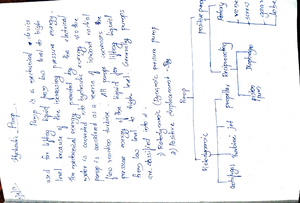 Hydraulic Pump
Pump is a mechanical device
used for lifting liquid from low level to high
level because of the increasing pressure energy.
the mechanical energy by the electrical
motor is converted into hydraulic energy so the
pump is as a reverse of inward radial
flow reaction turbine. All pumps increases the
pressure energy of the liquid for lifting liquid
from low level to high level. Generally pumps
are classified into
1) Rotodynamic (dynamic pressure pump
2) Positive displacement
Pump
Rotodynamic
positive pump
centrifugal
Turbine
Jet
propeller
Reciprocating
Rotary
piston
Diaphragm
vane
screw
gear
lobe